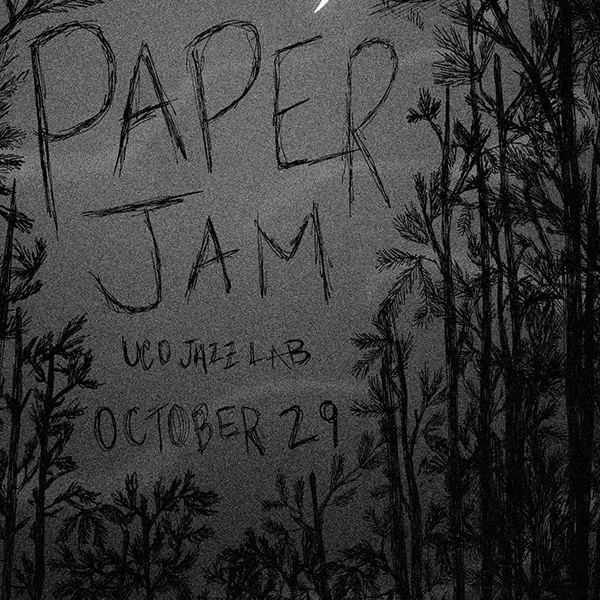 PAPER
JAM
UCO JAZZ LAB
OCTOBER 29